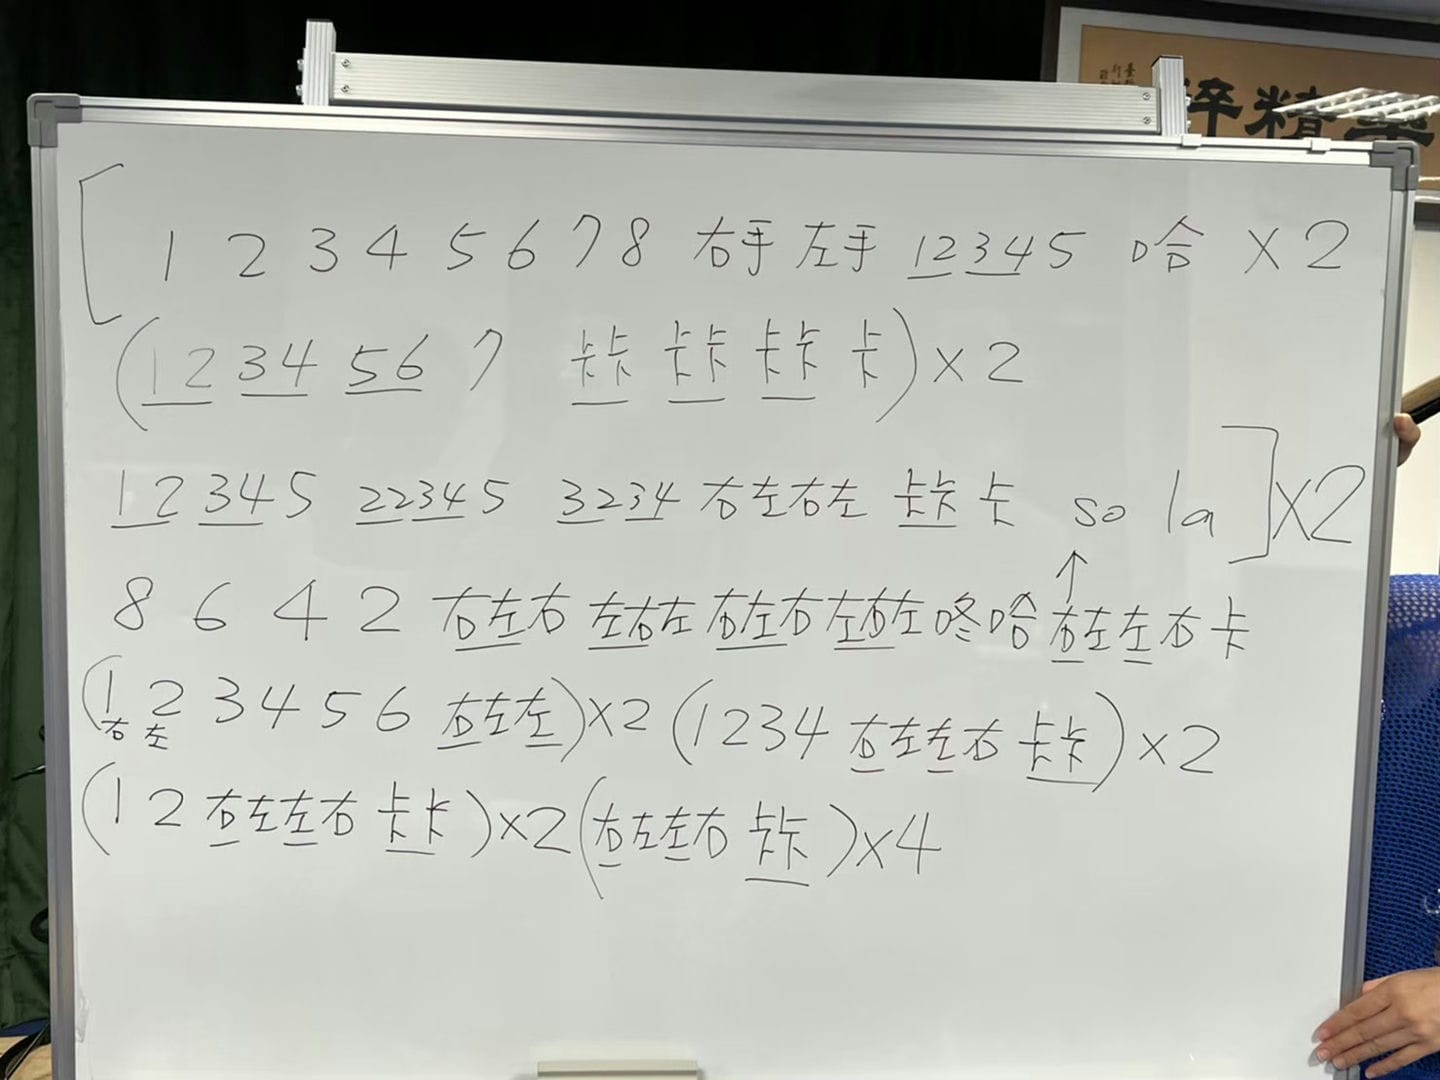 精粹
[ 1 2 3 4 5 6 7 8 右手 左手 12345 哈 ×2
(12 34 56 7 卡卡 卡卡 卡卡 卡)×2
12345 22345 3234 右左右左 卡卡卡 so la ]×2
↑
8 6 4 2 右左右 左右左 右左右 左右左 咚哈 右左左右卡
(1 2 3 4 5 6 右左左)×2 (1234 右左左右 卡卡)×2
右 左
(1 2 右左左右 卡卡)×2 (右左左右 卡卡)×4